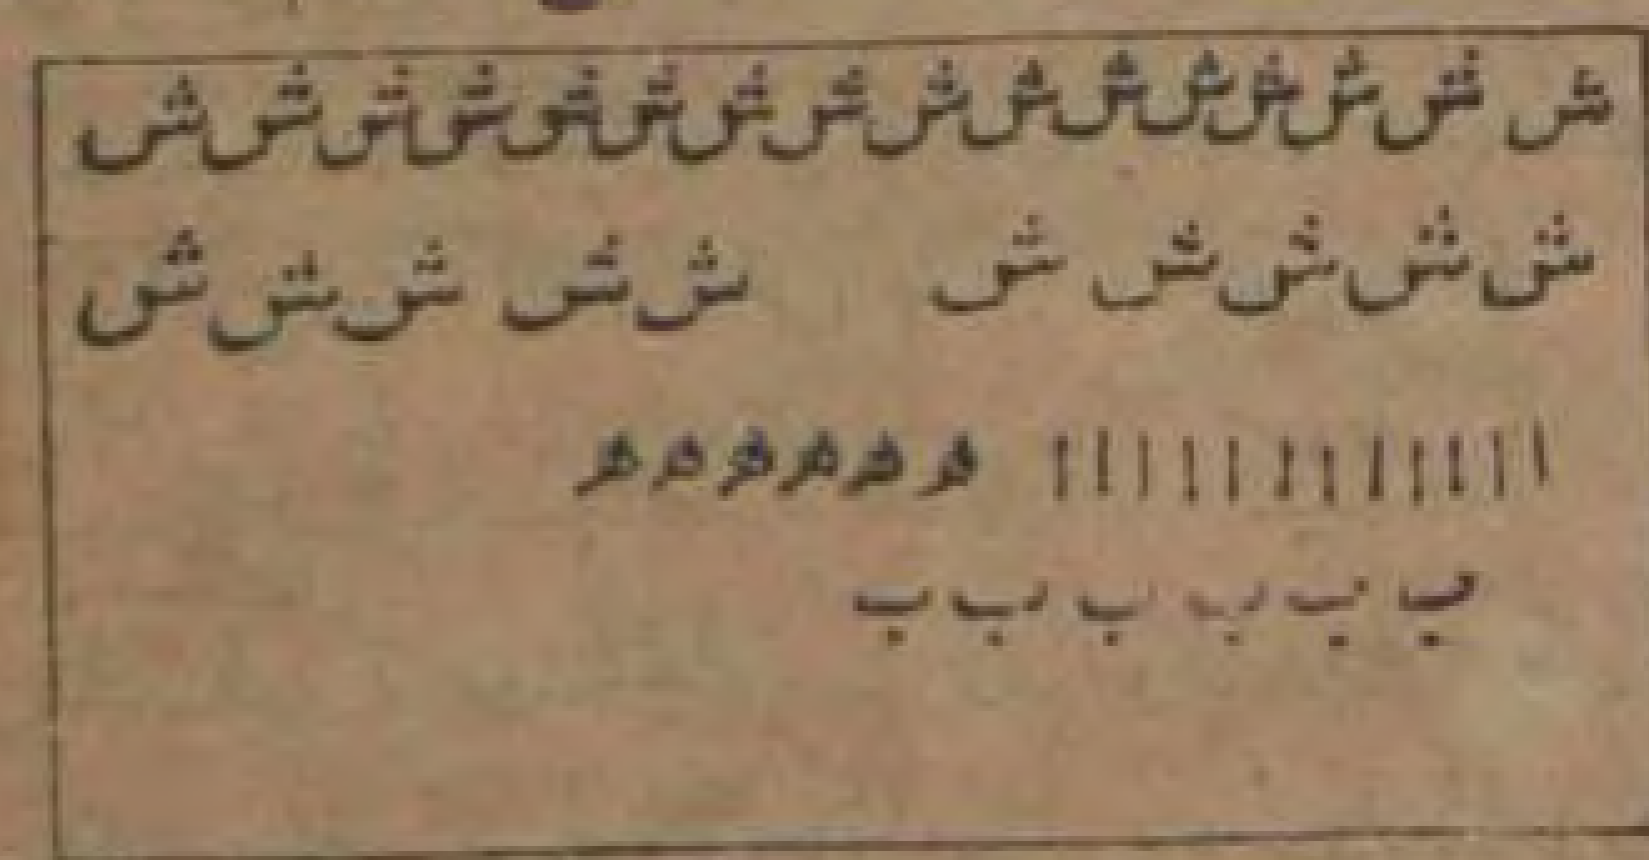 ش ش ش ش ش ش ش ش ش ش ش ش ش ش ش ش
ش ش ش ش ش ش ش ش ش ش
ا ا ا ا ا ا ا ا ا ا ا ا
ب ب ب ب ب ب